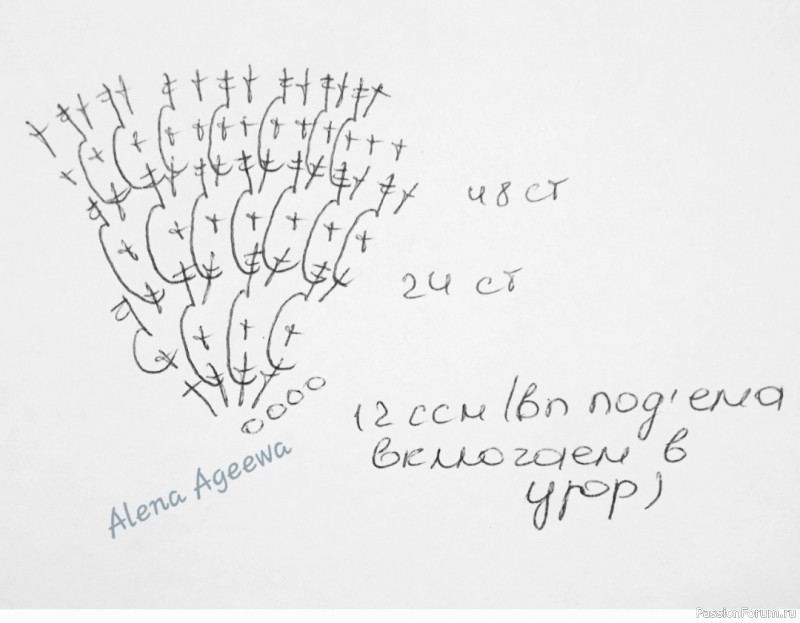 48 ст
24 ст
12 ссм (вп под'ема
включаем в
узор)
Alena Ageewa
PassionForum.ru